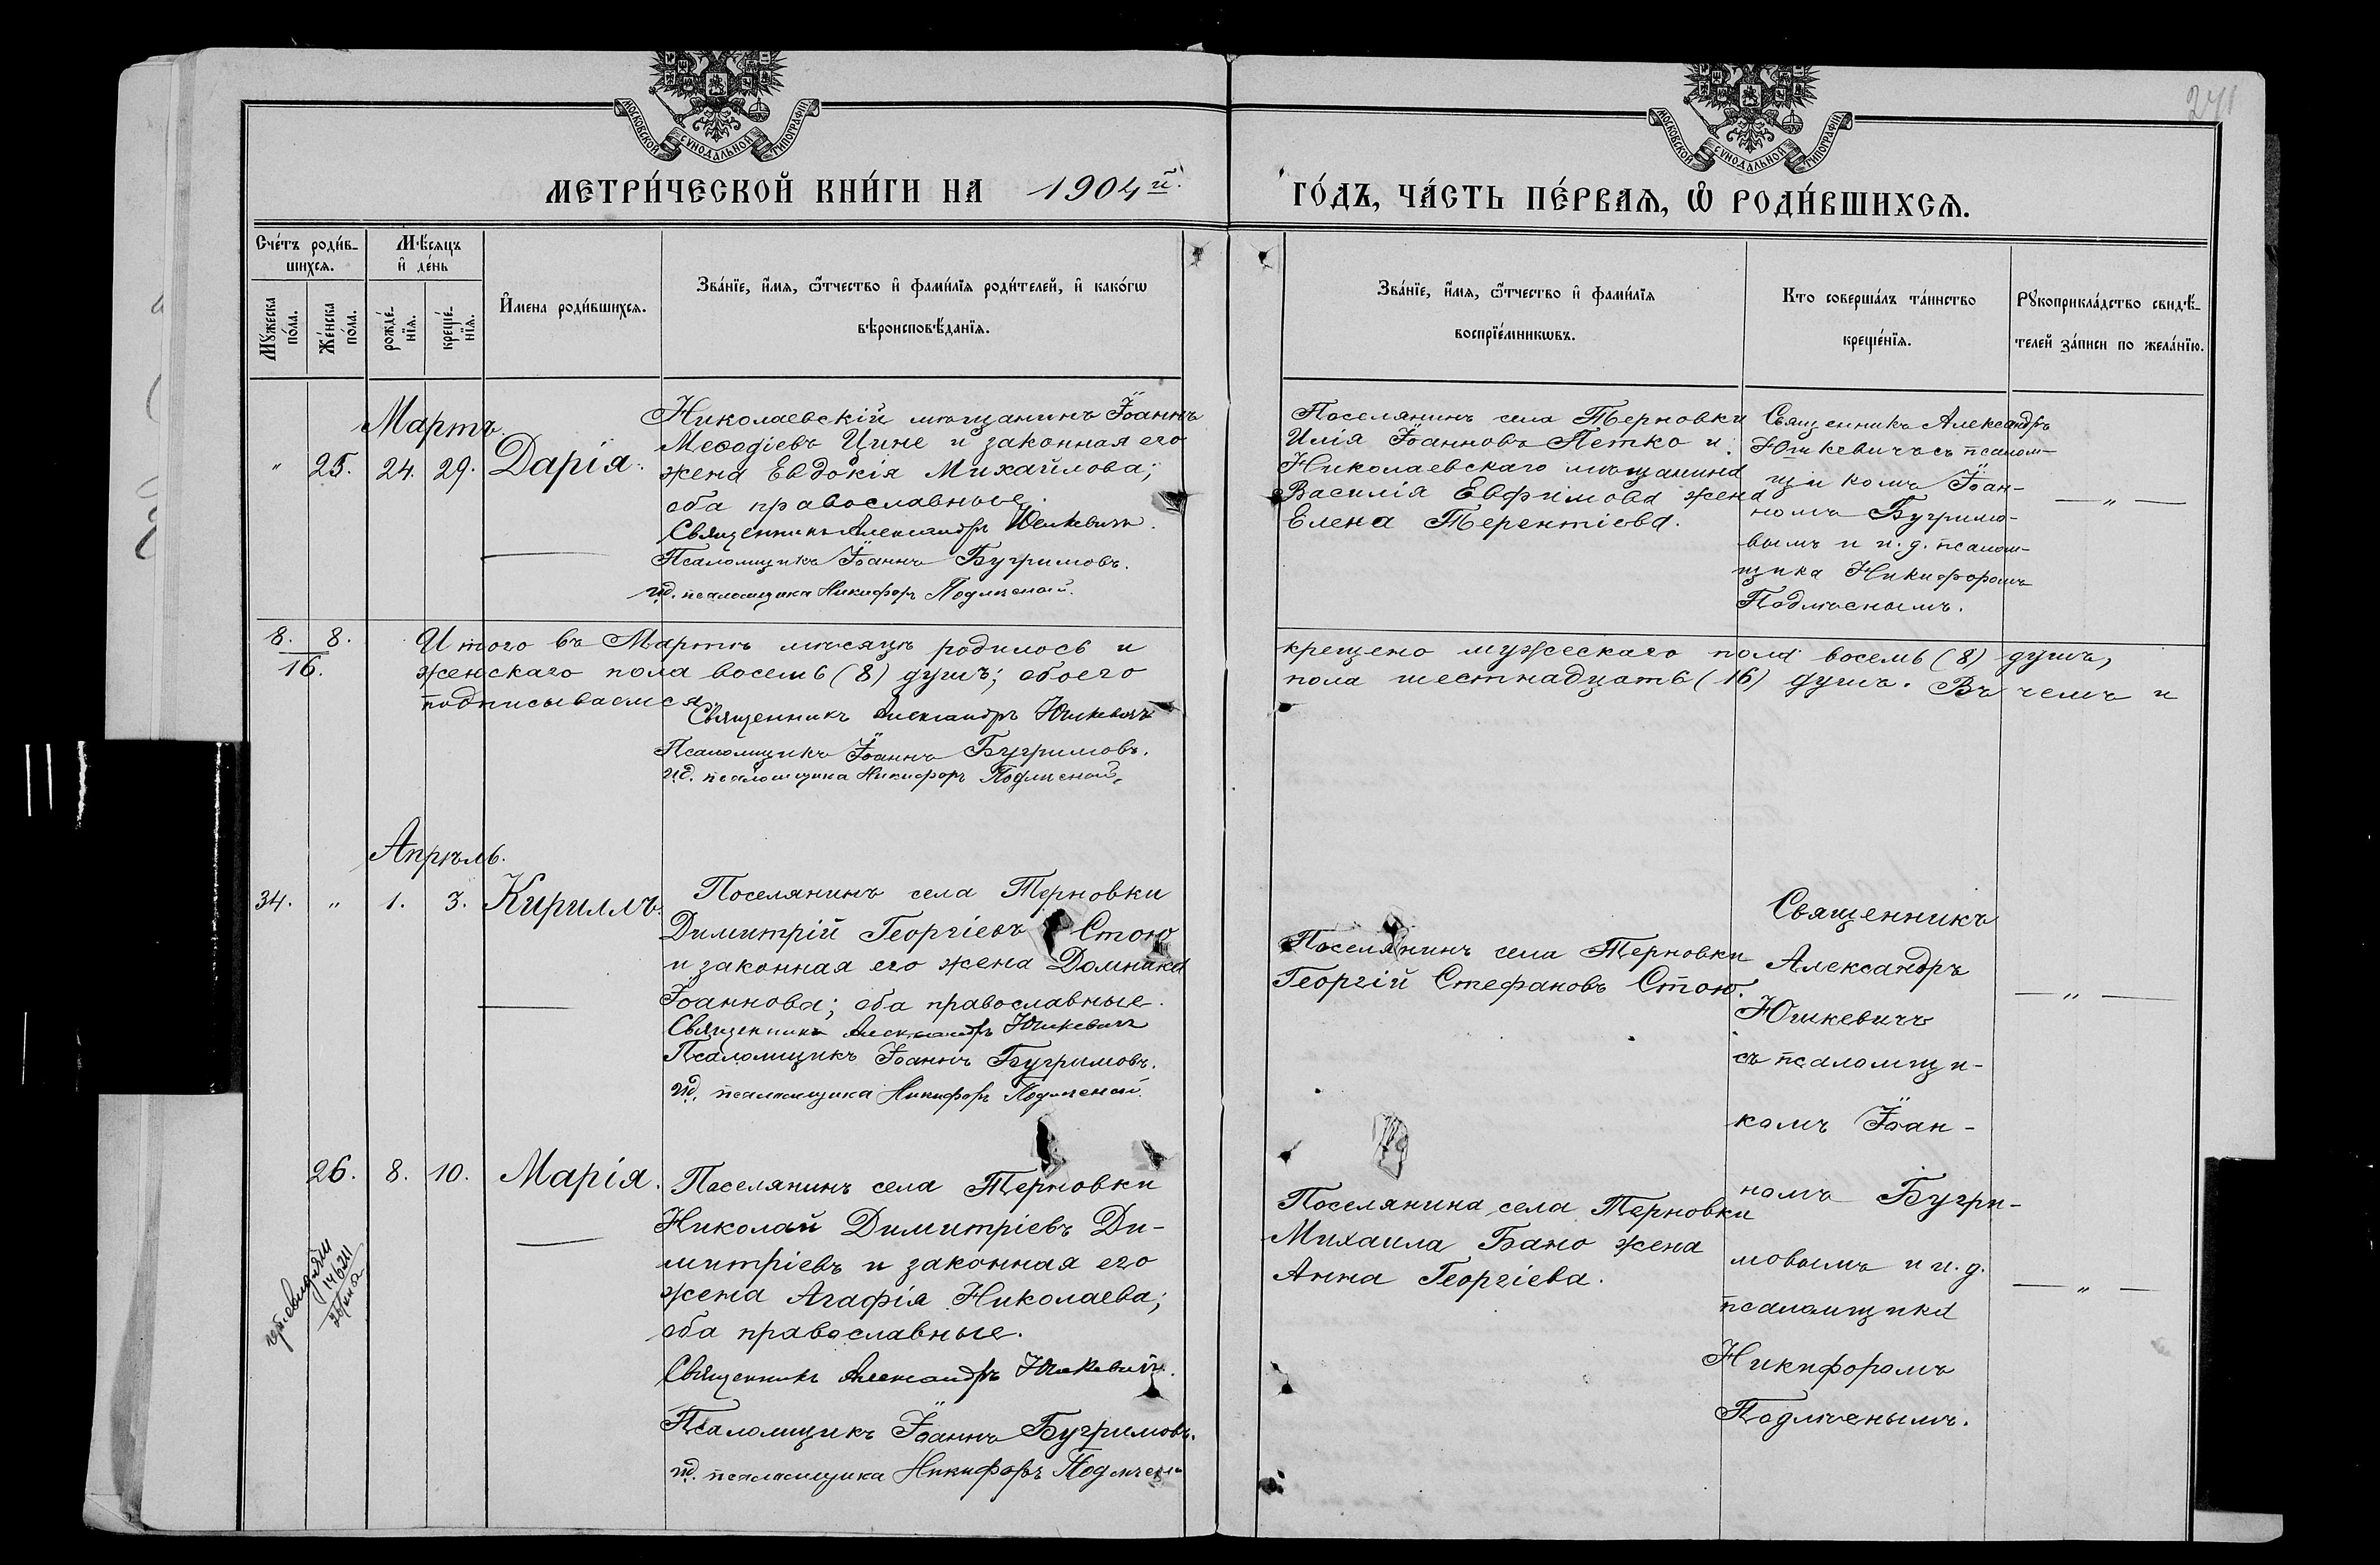 МОСКОВСКОЙ СѴНОДАЛЬНОЙ ТИПОГРАФІИ
МОСКОВСКОЙ СѴНОДАЛЬНОЙ ТИПОГРАФІИ
241
МЕТРИ́ЧЕСКОЙ КНИ́ГИ НА 1904й.
ГО́ДЪ, ЧА́СТЬ ПЕ́РВАѦ, Ѡ҆ РОДИ́ВШИХСѦ.
Сче́тъ роди́в-
шихсѧ.
Мꙋ́жеска по́ла.
Же́нска по́ла.
Мѣ́сѧцъ
и҆ де́нь
рожде́нїѧ.
креще́нїѧ.
И҆мена роди́вшихсѧ.
Зва́нїе, и҆́мѧ, ѻ҆́тчество и҆ фами́лїѧ роди́телей, и҆ како́гѡ
вѣроисповѣ́данїѧ.
Зва́нїе, и҆́мѧ, ѻ҆́тчество и҆ фами́лїѧ
воспрїе́мникѡвъ.
Кто соверша́лъ та́инство
креще́нїѧ.
Рꙋкоприкла́дство свидѣ́-
телей за́писи по жела́нїю.
Мартъ.
" 25. 24. 29. Дарія.
Николаевскій мѣщанинъ Іоаннъ
Меѳодіевъ Цине и законная его
жена Евдокія Михайлова;
оба православные.
Священникъ Александръ Юшкевичъ.
Псаломщикъ Іоаннъ Бугримовъ.
ид. псаломщика Никифоръ Подлѣсной.
Поселянинъ села Терновки
Илія Іоанновъ Петко и
Николаевскаго мѣщанина
Василія Евфимова жена
Елена Терентіева.
Священникъ Александръ
Юшкевичъ съ псалом-
щикомъ Іоан-
номъ Бугримо-
вымъ и и.д. псалом-
щика Никифоромъ
Подлѣснымъ.
— " —
8. 8.
16.
Итого въ Мартѣ мѣсяцѣ родилось и крещено мужескаго пола восемь (8) душъ,
женскаго пола восемь (8) душъ; обоего пола шестнадцать (16) душъ. Въ чемъ и
подписываемся
Священникъ Александръ Юшкевичъ
Псаломщикъ Іоаннъ Бугримовъ.
ид. псаломщика Никифоръ Подлѣсной.
Апрѣль.
34. " 1. 3. Кириллъ.
Поселянинъ села Терновки
Димитрій Георгіевъ Стою
и законная его жена Домника
Іоаннова; оба православные.
Священникъ Александръ Юшкевичъ
Псаломщикъ Іоаннъ Бугримовъ.
ид. псаломщика Никифоръ Подлѣсной.
Поселянинъ села Терновки
Георгій Стефановъ Стою.
Священникъ
Александръ
Юшкевичъ
съ псаломщи-
комъ Іоан-
номъ Бугри-
мовымъ и и.д.
псаломщика
Никифоромъ
Подлѣснымъ.
— " —
26. 8. 10. Марія.
Поселянинъ села Терновки
Николай Димитріевъ Ди-
митріевъ и законная его
жена Агафія Николаева;
оба православные.
Священникъ Александръ Юшкевичъ.
Псаломщикъ Іоаннъ Бугримовъ.
ид. псаломщика Никифоръ Подлѣсн
Поселянина села Терновки
Михаила Бано жена
Анна Георгіева.
— " —